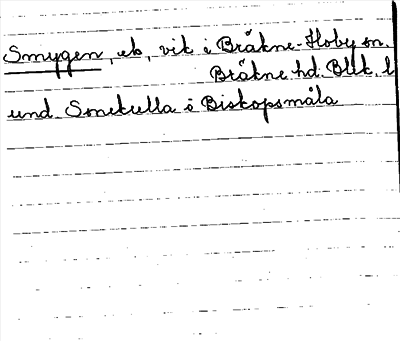 Smygen, eb, vik i Bräkne-Hoby sn.
Bräkne hd. Blek. l
und. Smekulla å Biskopsmåla